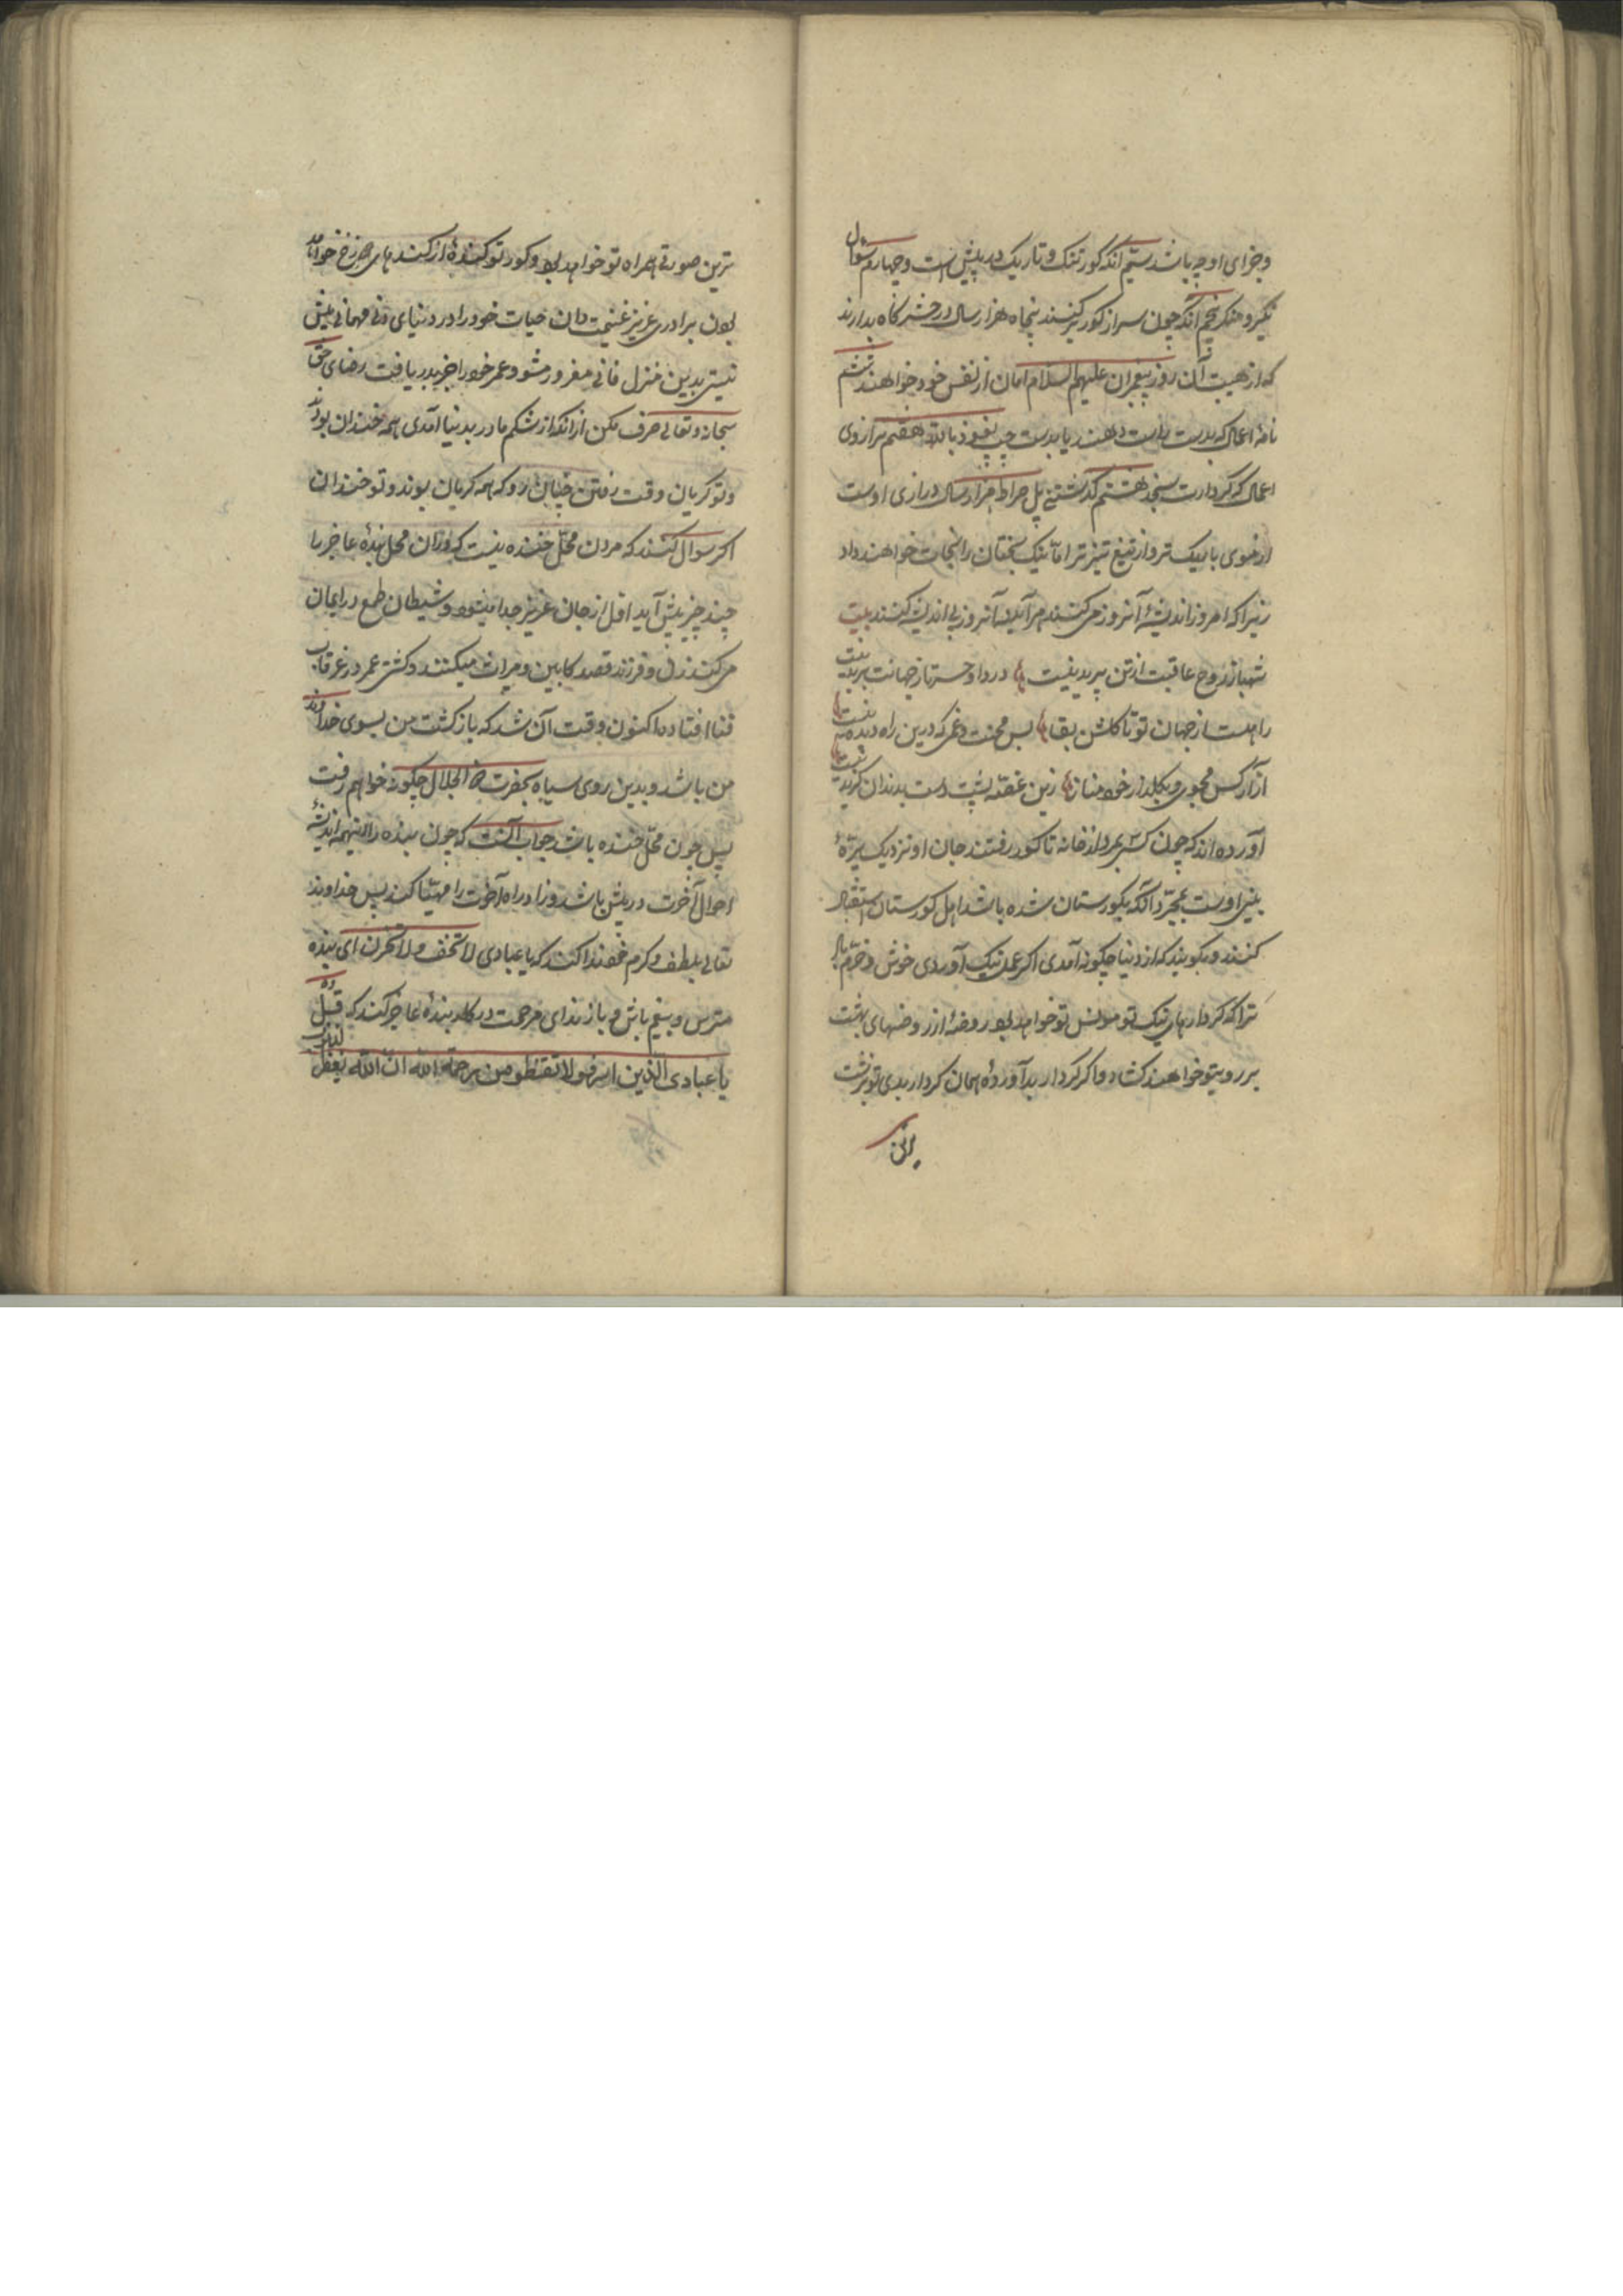 وجزای او چه باشد سیم انکه کور تنک و تاریک در پیش است و چهارم سؤال
نکیر و منکر پنجم انکه چون سر از کور بر کنند پنجاه هزار سال در حشر کاه بدارند
که از هیبت آن روز پیغمبران علیهم السلام امان از نفس خود خواهند ششم
نامهٔ اعمال که بدست راست دهند یا بدست چپ نعوذ بالله هفتم ترازوی
اعمال که کردارت بسنجند هشتم کذشتن پل صراط هزار سال درازی اوست
از موی باریک تر و از تیغ تیز تر اما نیک بختان را نجات خواهند داد
زیرا که امروز اندیشهٔ آنروز می کنند هر آینه آنروز بی اندیشه کنند بیت
شهباز روح عاقبت از تن پریدنیست درد او حسرتا ز جهانت بریدنیست
راهست از جهان تو تا کلشن بقا بس محنت و غمی که درین راه دیدنیست
آزار کس مجوی و بکلذار خود مناز زین غصه پشت دست بدندان کزیدنیست
آورده اند که چون کسی بمرد و از خانه تا کور رفتند جان او نزدیک
بینی اوست بمجرد آنکه بکورستان شده باشد اهل کورستان استقبال
کنند و بکویند که از دنیا چکونه آمدی اکر عمل نیک آوردی خوش و خرم باش
ترا که کردارهای نیک تو مونس تو خواهد بود روضهٔ از روضهای بهشت
بر رویتو خواهند کشاد و اکر کردار بد آوردهٔ همان کردار بدی تو بزشت
ترین صورتی همراه تو خواهد بود و کور تو کندهٔ از کندهای دوزخ خواهد
بودن برادری عزیز غنیمت دان حیات خود را در دنیای دنی مهمانی بیش
نیستی بدین منزل فانی مغرور مشو و عمر خود را جز بدر یافت رضای حق
سبحانه و تعالی صرف مکن از انکه از شکم مادر بدنیا آمدی همه خندان بودند
و تو کریان وقت رفتن چنان رو که همه کریان بوند و تو خندان
اکر سوال کنند که مردن محل خنده نیست که در آن محل بندهٔ عاجز را
چند چیز پیش آید اول از جان عزیز جدا میشود و شیطان طمع در ایمان
می کند زن و فرزند قصد کابین و میراث میکنند و کشتی عمر در غرقاب
فنا افتاده اکنون وقت آن شد که بازکشت من بسوی خداوند
من باشد و بدین روی سیاه بحضرت ذو الجلال چکونه خواهم رفت
پس چون محل خنده باشد جواب آنست که چون بنده را اینهمه اندیشهٔ
احوال آخرت در پیش باشد و زاد راه آخرت را مهیّا کند پس خداوند
تعالی بلطف و کرم خود ندا کند که یا عبادی لا تخف و لا تحزن ای بنده
مترس و بیغم باش و باز ندای مرحمت در کار بندهٔ عاجز کند که قل
یا عبادی الذین اسرفوا لا تقنطو من رحمة الله ان الله یغفر